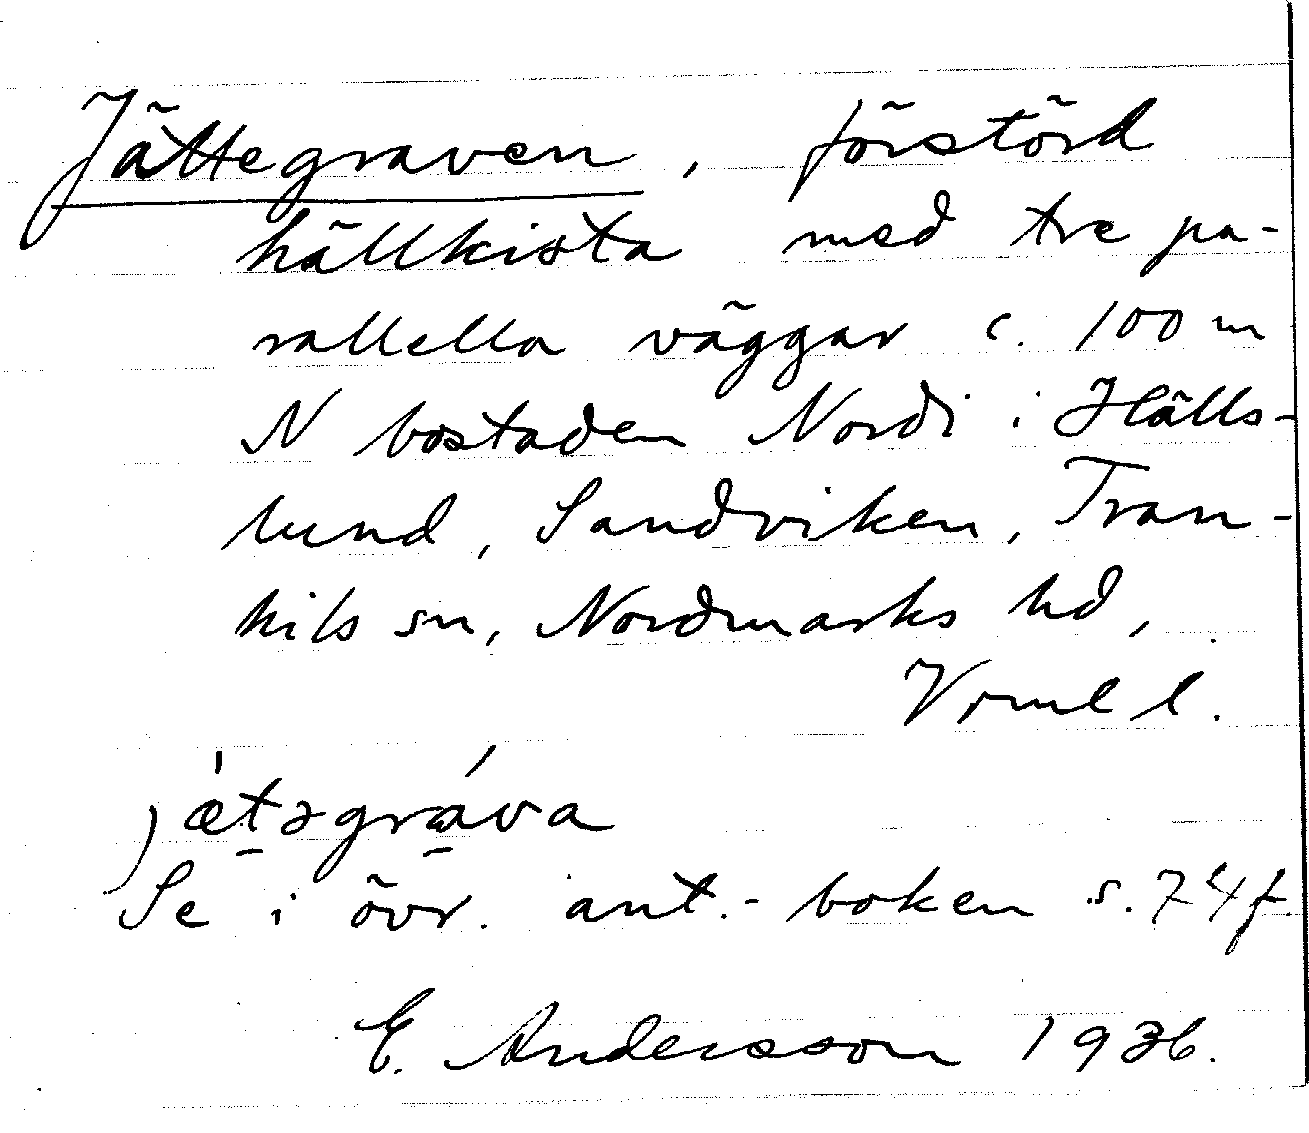 Jättegraven, förstörd
hällkista med tre pa-
rallella väggar c. 100 m
N bostaden Nordi i Hälls-
lund, Sandviken, Tran-
kils sn, Nordmarks hd,
Vrml l.
jæ̍təgráva
Se i övr. ant.-boken s. 74 f.
E. Andersson 1936.